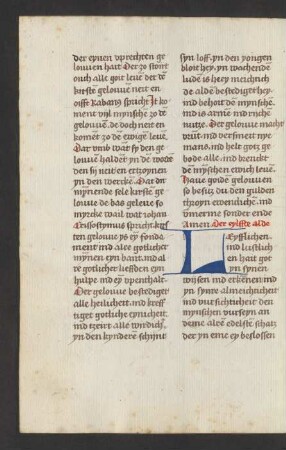 der eynen oprechten ge
louven hait Der zo stoirt
ouch alle goit leue der dē
kirste gelouve neit en
oisse kabans spricht It ko
ment vyl mynsche zo dē
gelouvē de doch neit en
komēt zo dē ewigē leuē
Dar vmb wat sy den ge
louvē haldēt yn dē worde
den sy neit en ertzoynen
yn den wercke Dat dit
mynende sele kirste ge
louve de bas geleue so
myrcke wail wat iohan
Crisostymus spricht kirs
ten gelouve ys ey fonda
ment ind alre gotlicher
mynen eyn bant ind al
re gotlicher liefden eyn
hulpe ind ey vpenthalt
Der gelouve bestediget
alle heilicheit ind kreff
tiget gotliche eynicheit
ind tzeirt alle wirdich
yn den kynderē schynt
syn loff yn den jongen
bloit hey yn wachende
ludē is heey meichtich
de aldē bestediget hey
ind behoit dē mynschē
ind is armē ind rychē
nutze Der gelouve macht
vort ind versmeit ney
mans ind helt gotz ge
bode alle ind brenckt
dē mynschē ewich leuē
Haue goidē gelouven
so besitz du den gulden
thoyn ewenclichē ind
vmerme sonder ende
Amen Der eylffte alde
Leyfflichen
ind lustlich
en hait got
yn synen
wysen ind erkēnen ind
yn synre almeichticheit
ind vursichticheit den
mynschen vurseyn an
deme alrē edelste schatz
der yn eme ey beslossen